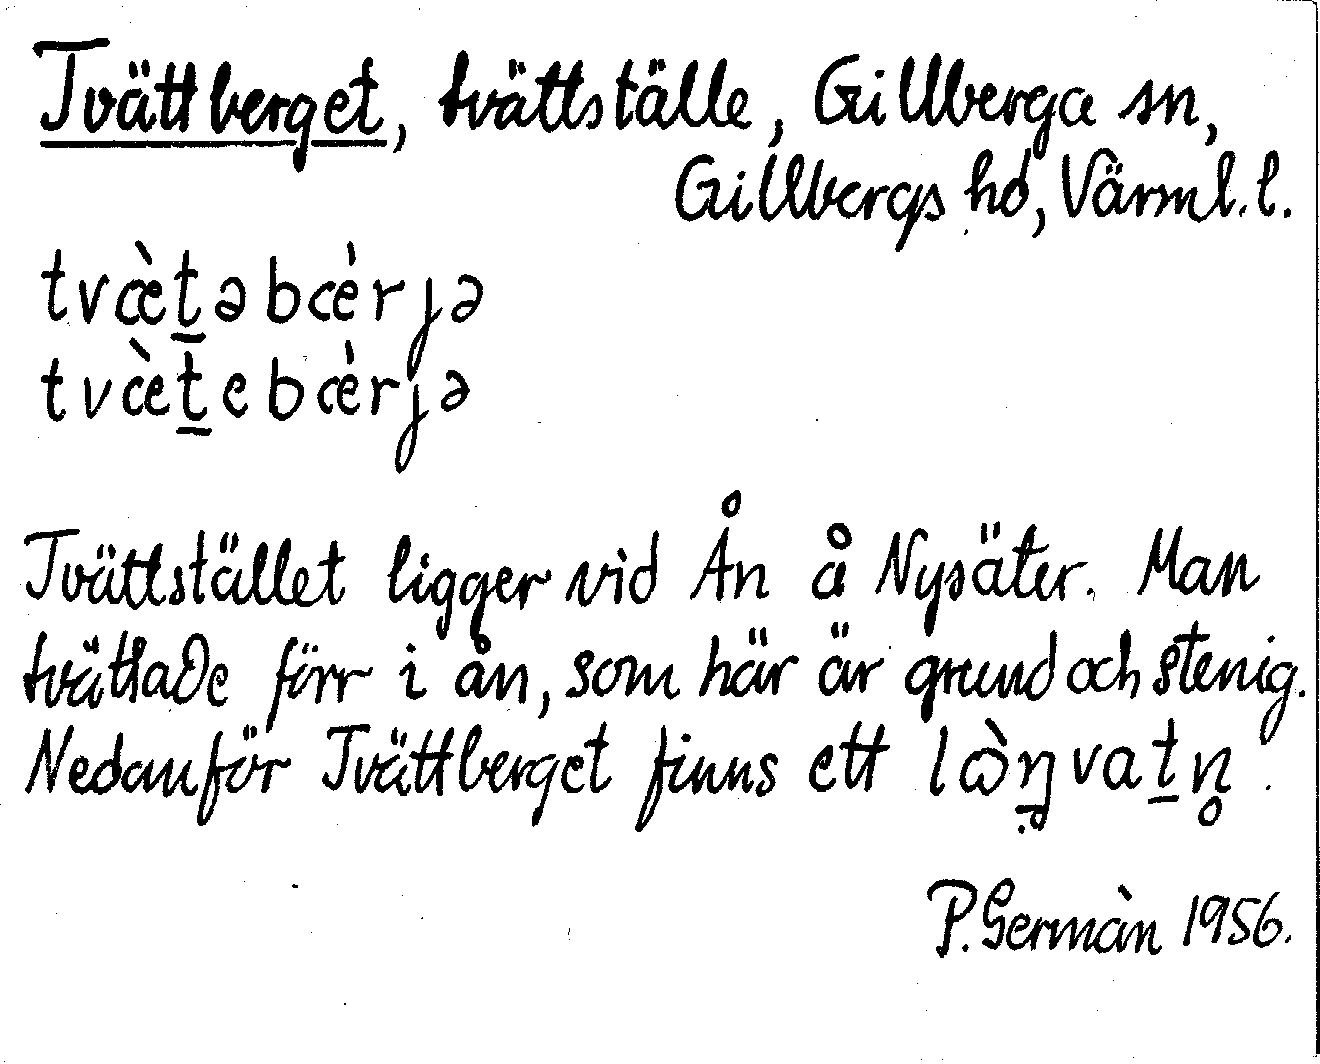 Tvättberget, tvättställe, Gillberga sn,
Gillbergs hd, Värml. l.
tvæ̀t̠əbæ̀rjə
tvæ̀t̠ebæ̀rjə
Tvättstället ligger vid Ån å Nysäter. Man
tvättade förr i ån, som här är grund och stenig.
Nedanför Tvättberget finns ett lɷ̀ŋvat̠n̥.
P. Germàn 1956.